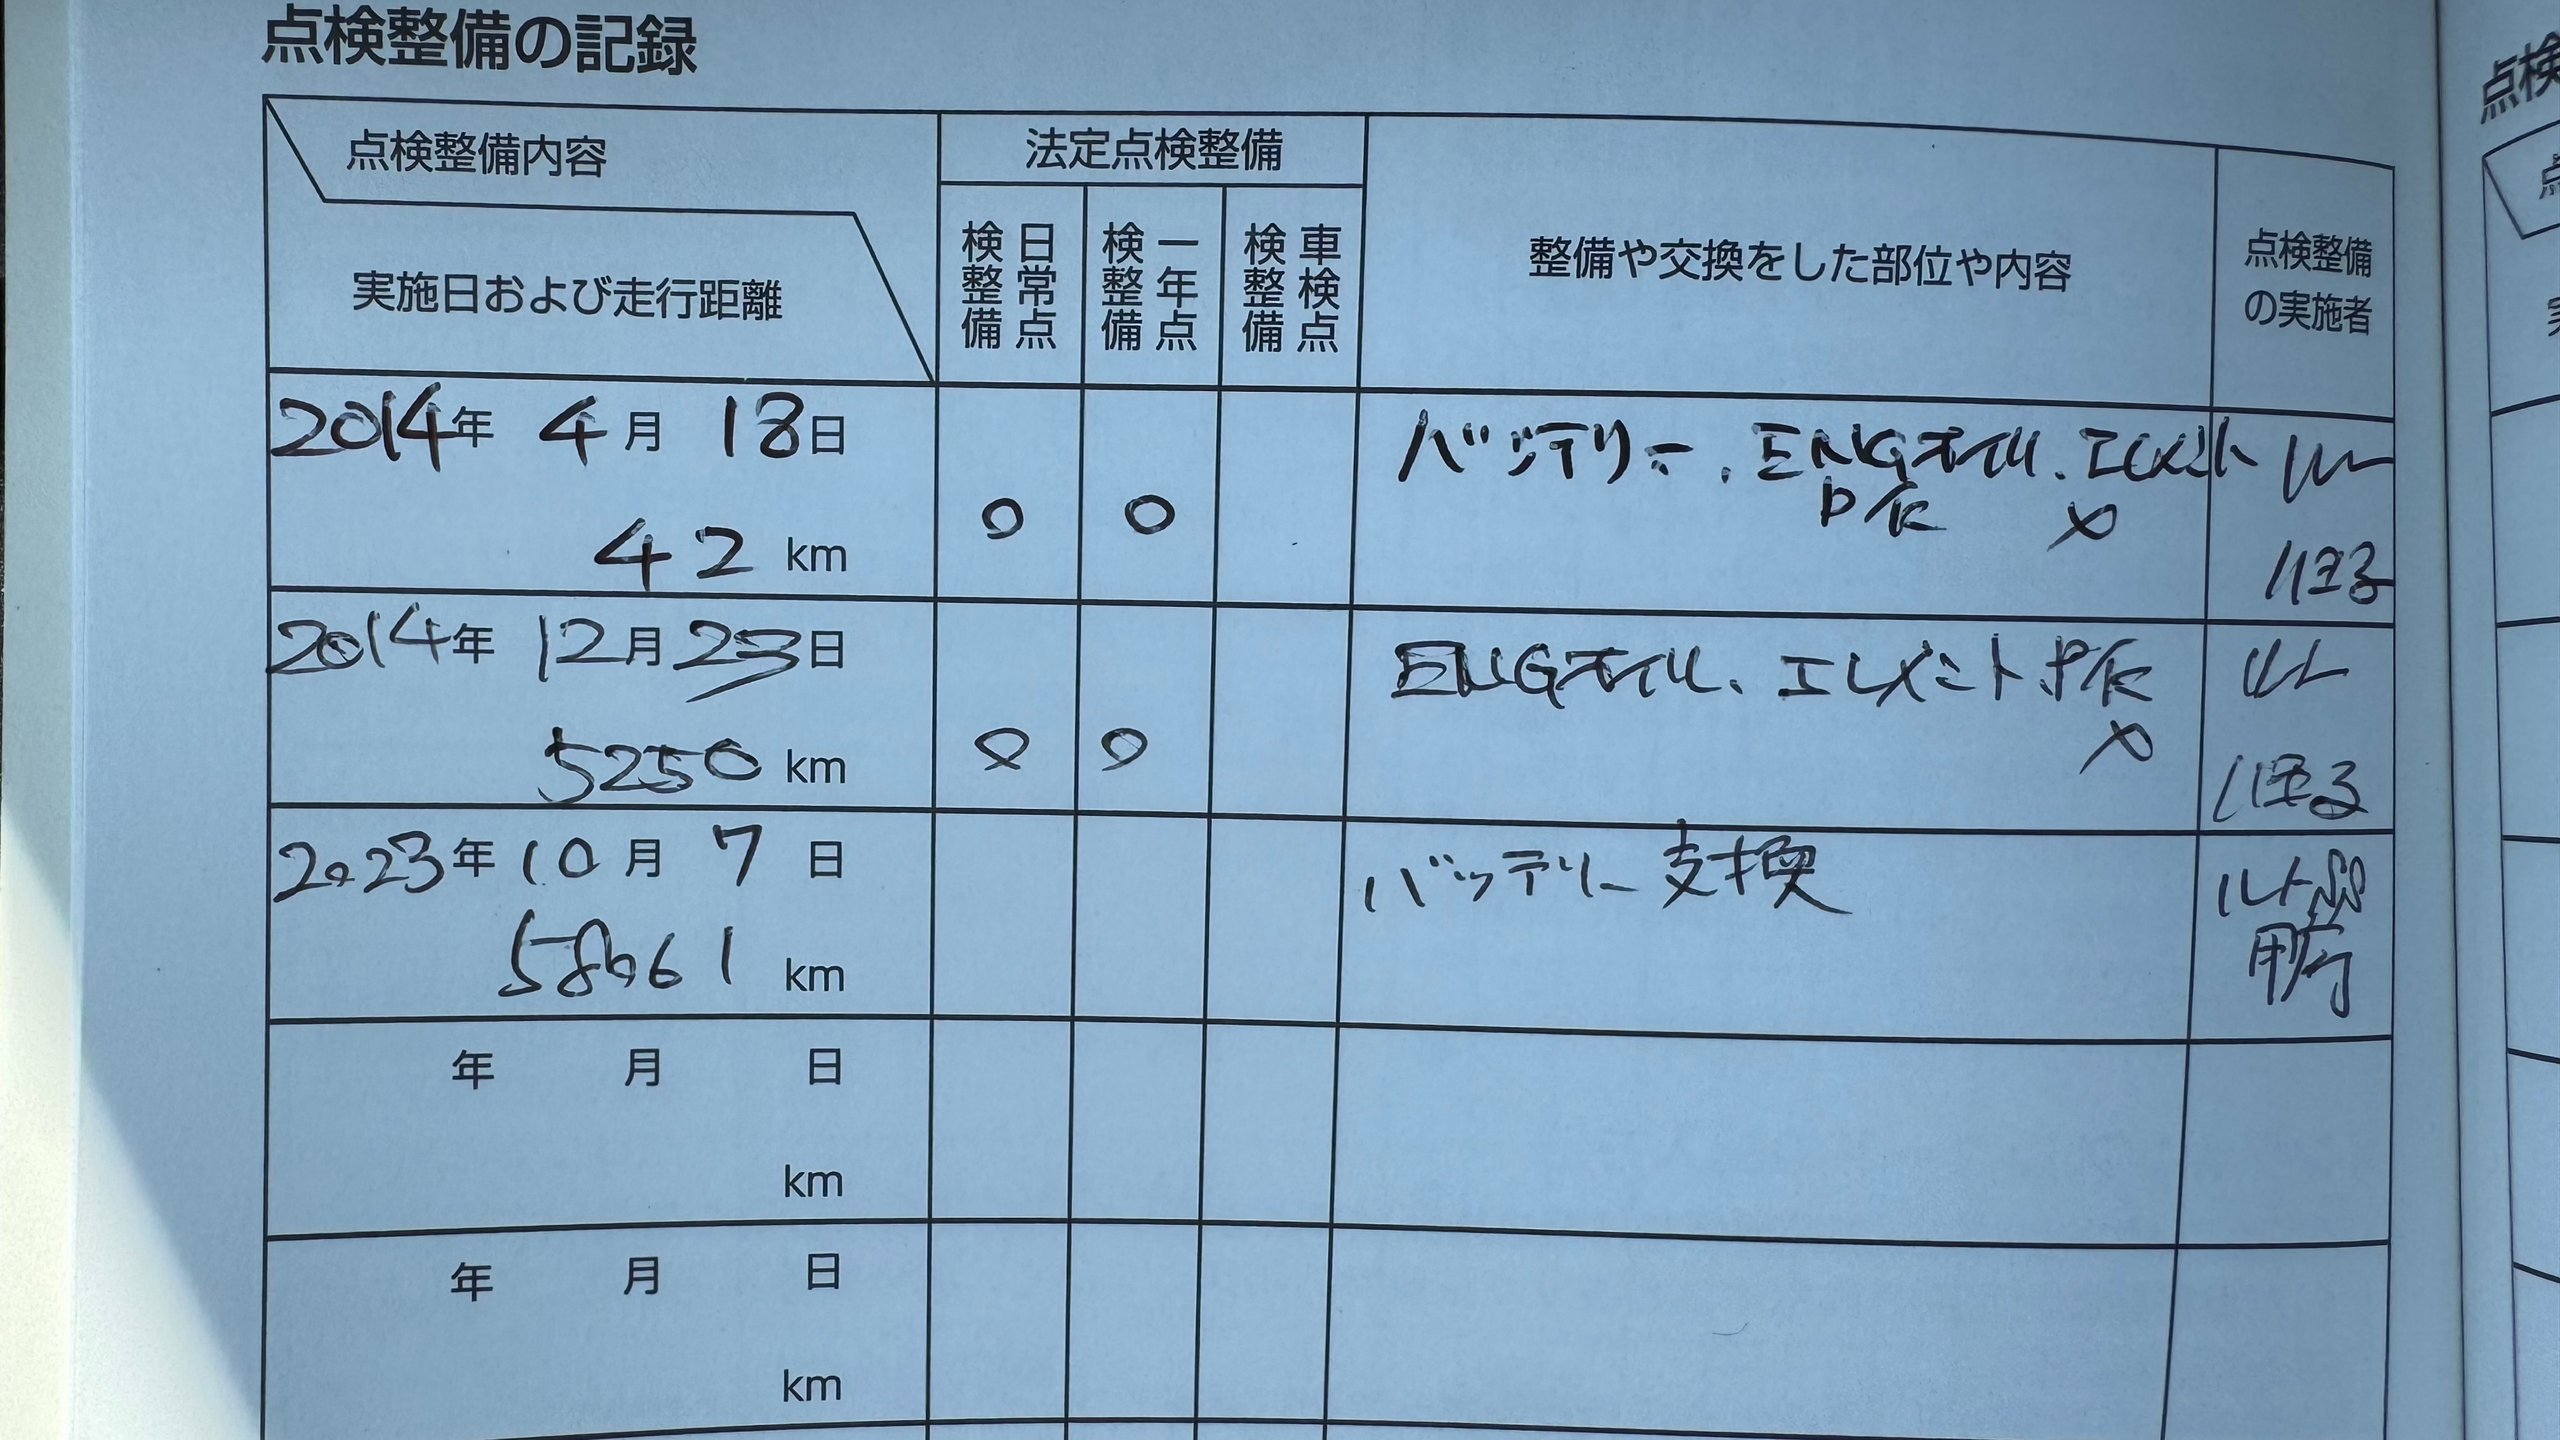 点検整備の記録
点検整備内容
実施日および走行距離
法定点検整備
日常点検整備
一年点検整備
車検点検整備
整備や交換をした部位や内容
点検整備
の実施者
2014年 4月 18日
42 km
○ ○
バッテリー、ENGオイル、エレメント
2014年 12月 23日
5250 km
○ ○
ENGオイル、エレメント
2023年 10月 7日
km
バッテリー交換
年 月 日
km
年 月 日
km
点検